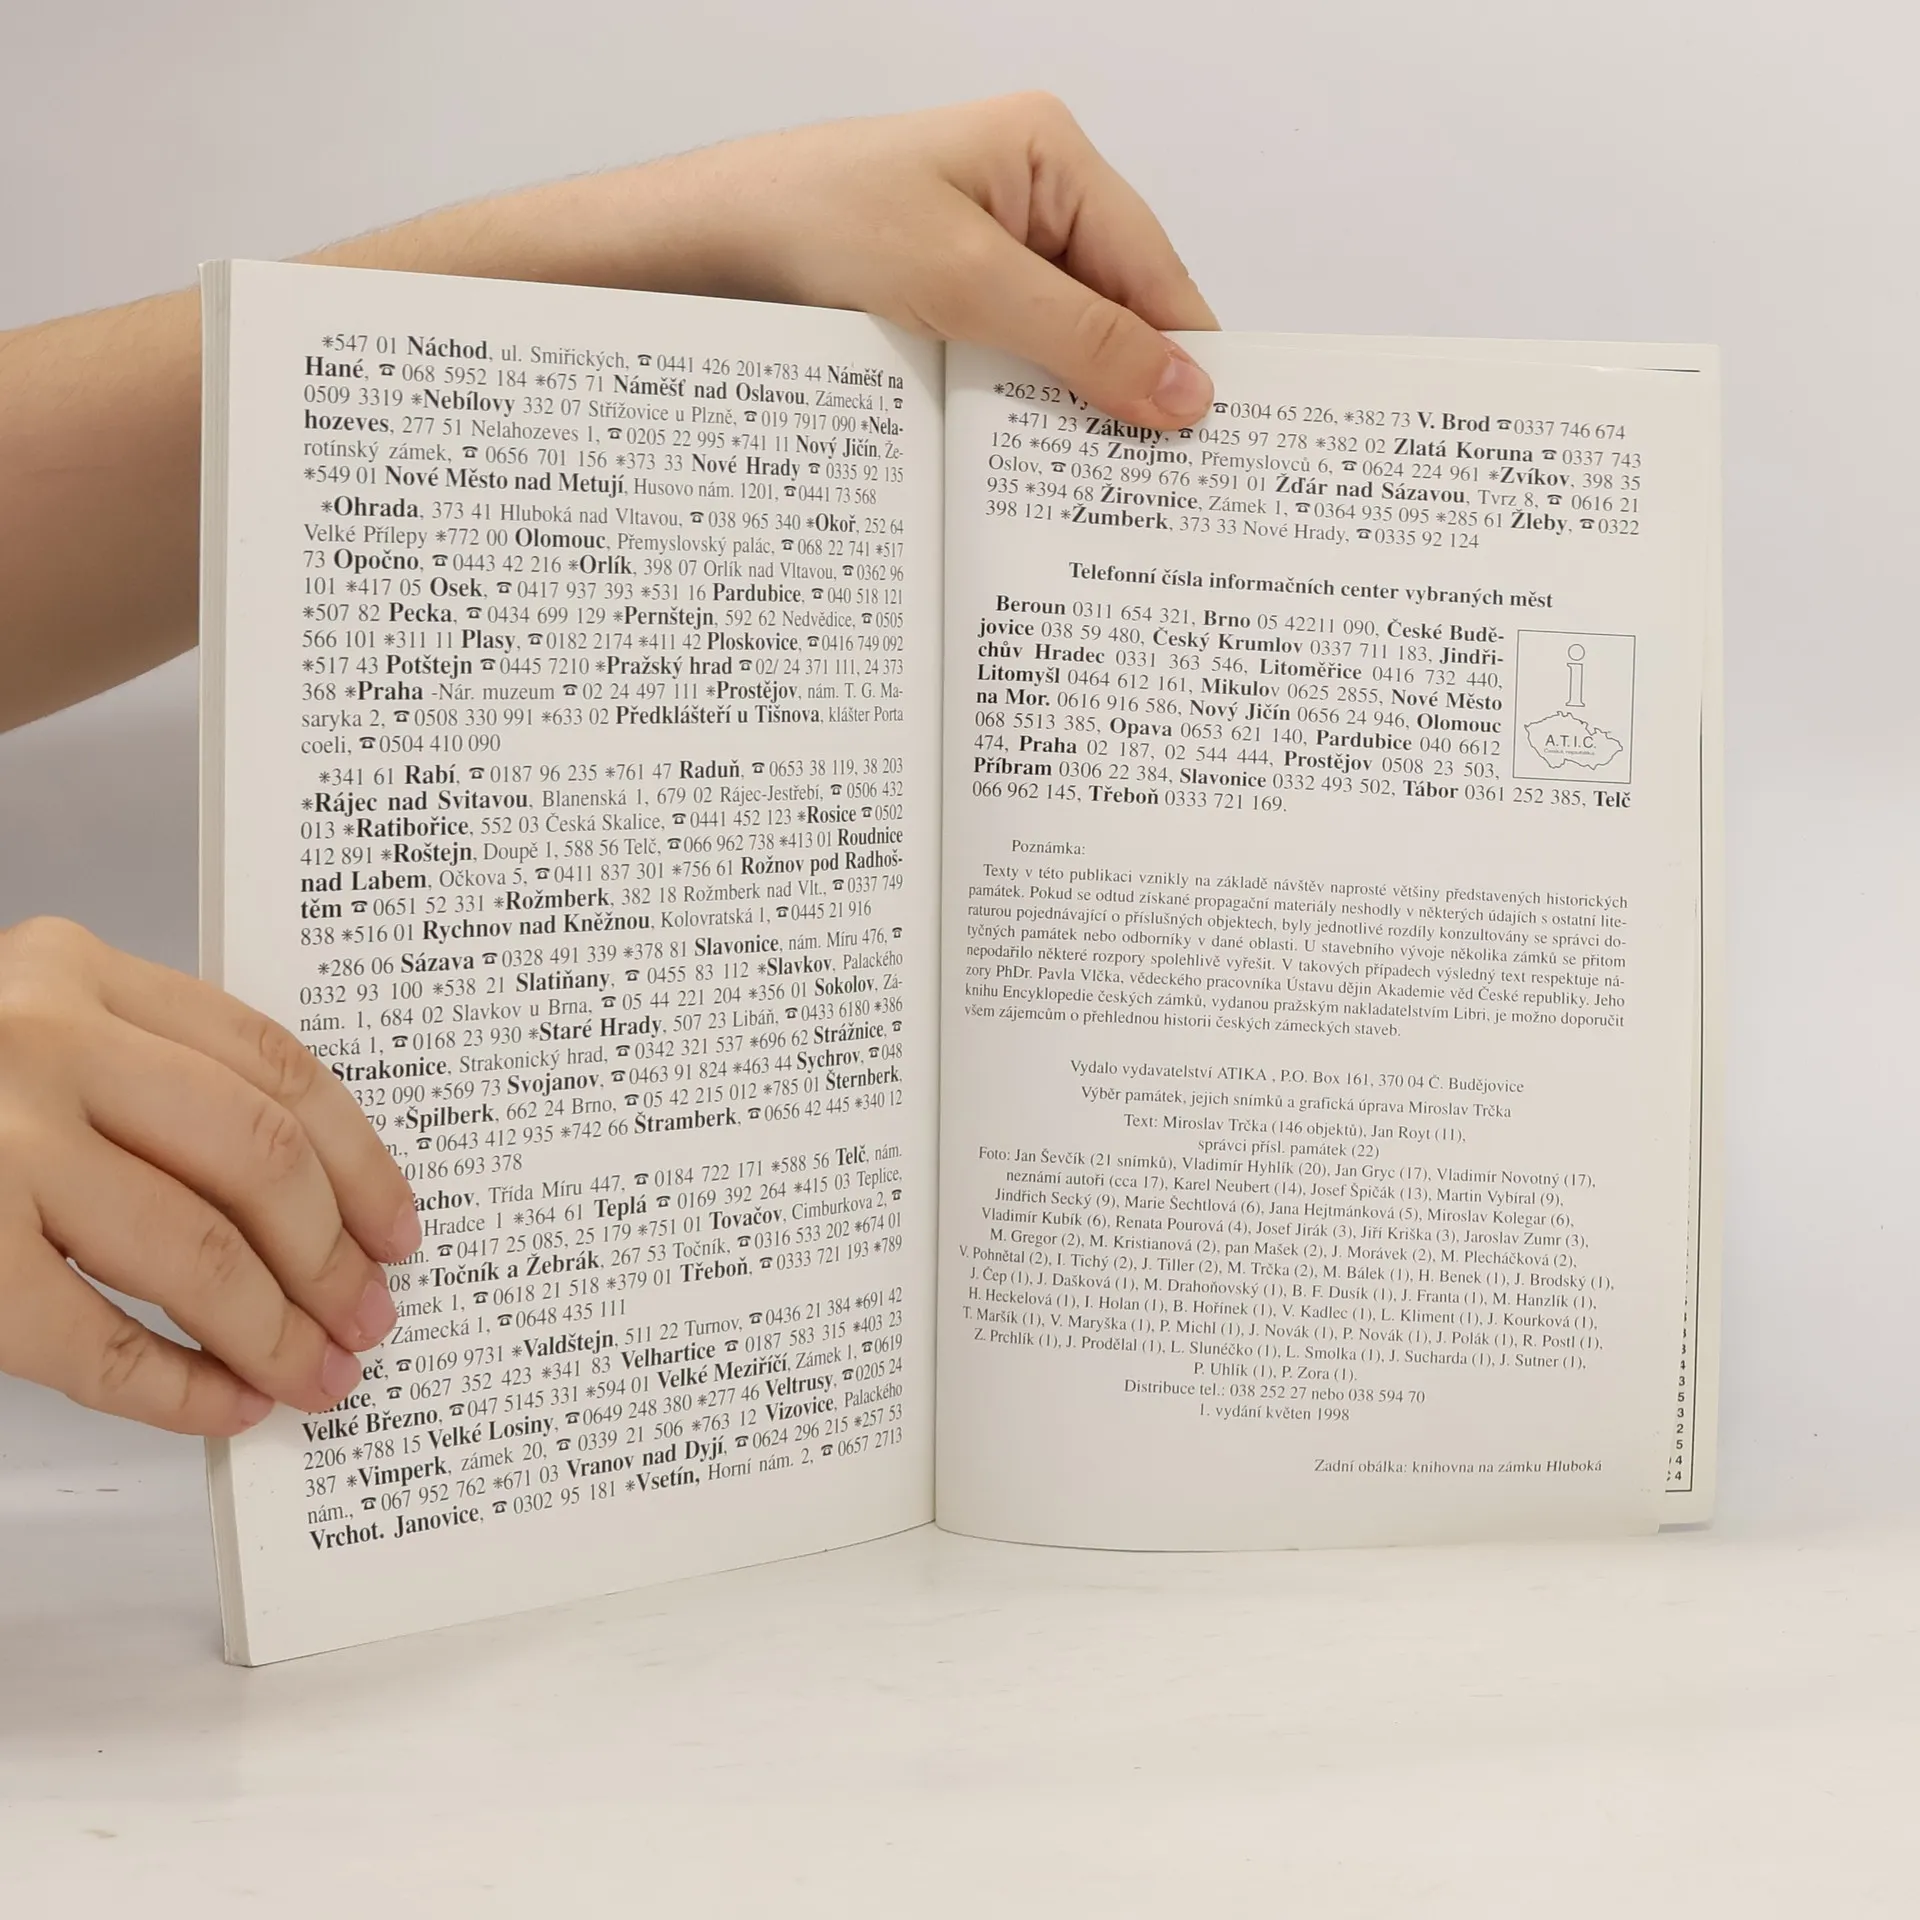 *547 01 Náchod, ul. Smiřických, ☎0441 426 201*783 44 Náměšť na
Hané, ☎ 068 5952 184 *675 71 Náměšť nad Oslavou, Zámecká 1, ☎
0509 3319 *Nebílovy 332 07 Střížovice u Plzně, ☎ 019 7917 090 *Nela-
hozeves, 277 51 Nelahozeves 1, ☎ 0205 22 995 *741 11 Nový Jičín, Že-
rotínský zámek, ☎ 0656 701 156 *373 33 Nové Hrady ☎ 0335 92 135
*549 01 Nové Město nad Metují, Husovo nám. 1201, ☎0441 73 568
*Ohrada, 373 41 Hluboká nad Vltavou, ☎ 038 965 340 *Okoř, 252 64
Velké Přílepy *772 00 Olomouc, Přemyslovský palác, ☎ 068 22 741 *517
73 Opočno, ☎ 0443 42 216 *Orlík, 398 07 Orlík nad Vltavou, ☎ 0362 96
101 *417 05 Osek, ☎ 0417 937 393 *531 16 Pardubice, ☎ 040 518 121
*507 82 Pecka, ☎ 0434 699 129 *Pernštejn, 592 62 Nedvědice, ☎ 0505
566 101 *311 11 Plasy, ☎0182 2174 *411 42 Ploskovice, ☎0416 749 092
*517 43 Potštejn ☎ 0445 7210 *Pražský hrad ☎ 02/ 24 371 111, 24 373
368 *Praha -Nár. muzeum ☎ 02 24 497 111 *Prostějov, nám. T. G. Ma-
saryka 2, ☎ 0508 330 991 *633 02 Předklášteří u Tišnova, klášter Porta
coeli, ☎ 0504 410 090
*341 61 Rabí, ☎ 0187 96 235 *761 47 Raduň, ☎ 0653 38 119, 38 203
*Rájec nad Svitavou, Blanenská 1, 679 02 Rájec-Jestřebí, ☎ 0506 432
013 *Ratibořice, 552 03 Česká Skalice, ☎ 0441 452 123 *Rosice ☎ 0502
412 891 *Roštejn, Doupě 1, 588 56 Telč, ☎066 962 738 *413 01 Roudnice
nad Labem, Očkova 5, ☎ 0411 837 301 *756 61 Rožnov pod Radhoš-
těm ☎ 0651 52 331 *Rožmberk, 382 18 Rožmberk nad Vlt., ☎ 0337 749
838 *516 01 Rychnov nad Kněžnou, Kolovratská 1, ☎0445 21 916
*286 06 Sázava ☎ 0328 491 339 *378 81 Slavonice, nám. Míru 476, ☎
0332 93 100 *538 21 Slatiňany, ☎ 0455 83 112 *Slavkov, Palackého
nám. 1, 684 02 Slavkov u Brna, ☎ 05 44 221 204 *356 01 Sokolov, Zá-
mecká 1, ☎ 0168 23 930 *Staré Hrady, 507 23 Libáň, ☎ 0433 6180 *386
Strakonice, Strakonický hrad, ☎ 0342 321 537 *696 62 Strážnice, ☎
332 090 *569 73 Svojanov, ☎ 0463 91 824 *463 44 Sychrov, ☎048
79 *Špilberk, 662 24 Brno, ☎ 05 42 215 012 *785 01 Šternberk,
☎ 0643 412 935 *742 66 Štramberk, ☎ 0656 42 445 *340 12
0186 693 378
Třída Míru 447, ☎ 0184 722 171 *588 56 Telč, nám.
Hradce 1 *364 61 Teplá ☎ 0169 392 264 *415 03 Teplice,
☎ 0417 25 085, 25 179 *751 01 Tovačov, Cimburkova 2, ☎
08 *Točník a Žebrák, 267 53 Točník, ☎ 0316 533 202 *674 01
☎ 0618 21 518 *379 01 Třeboň, ☎ 0333 721 193 *789
Zámecká 1, ☎ 0648 435 111
☎ 0169 9731 *Valdštejn, 511 22 Turnov, ☎ 0436 21 384 *691 42
☎ 0627 352 423 *341 83 Velhartice ☎ 0187 583 315 *403 23
Velké Březno, ☎ 047 5145 331 *594 01 Velké Meziříčí, Zámek 1, ☎ 0619
2206 *788 15 Velké Losiny, ☎ 0649 248 380 *277 46 Veltrusy, ☎ 0205 24
387 *Vimperk, zámek 20, ☎ 0339 21 506 *763 12 Vizovice, Palackého
nám., ☎ 067 952 762 *671 03 Vranov nad Dyjí, ☎ 0624 296 215 *257 53
Vrchot. Janovice, ☎ 0302 95 181 *Vsetín, Horní nám. 2, ☎ 0657 2713
*262 52 ☎0304 65 226, *382 73 V. Brod ☎0337 746 674
*471 23 Zákupy, ☎ 0425 97 278 *382 02 Zlatá Koruna ☎ 0337 743
126 *669 45 Znojmo, Přemyslovců 6, ☎ 0624 224 961 *Zvíkov, 398 35
Oslov, ☎ 0362 899 676 *591 01 Žďár nad Sázavou, Tvrz 8, ☎ 0616 21
935 *394 68 Žirovnice, Zámek 1, ☎ 0364 935 095 *285 61 Žleby, ☎0322
398 121 *Žumberk, 373 33 Nové Hrady, ☎ 0335 92 124
Telefonní čísla informačních center vybraných měst
Beroun 0311 654 321, Brno 05 42211 090, České Budě-
jovice 038 59 480, Český Krumlov 0337 711 183, Jindři-
chův Hradec 0331 363 546, Litoměřice 0416 732 440,
Litomyšl 0464 612 161, Mikulov 0625 2855, Nové Město
na Mor. 0616 916 586, Nový Jičín 0656 24 946, Olomouc
068 5513 385, Opava 0653 621 140, Pardubice 040 6612
474, Praha 02 187, 02 544 444, Prostějov 0508 23 503,
Příbram 0306 22 384, Slavonice 0332 493 502, Tábor 0361 252 385, Telč
066 962 145, Třeboň 0333 721 169.
i
A.T.I.C.
Česká republika
Poznámka:
Texty v této publikaci vznikly na základě návštěv naprosté většiny představených historických
památek. Pokud se odtud získané propagační materiály neshodly v některých údajích s ostatní lite-
raturou pojednávající o příslušných objektech, byly jednotlivé rozdíly konzultovány se správci do-
tyčných památek nebo odborníky v dané oblasti. U stavebního vývoje několika zámků se přitom
nepodařilo některé rozpory spolehlivě vyřešit. V takových případech výsledný text respektuje ná-
zory PhDr. Pavla Vlčka, vědeckého pracovníka Ústavu dějin Akademie věd České republiky. Jeho
knihu Encyklopedie českých zámků, vydanou pražským nakladatelstvím Libri, je možno doporučit
všem zájemcům o přehlednou historii českých zámeckých staveb.
Vydalo vydavatelství ATIKA , P.O. Box 161, 370 04 Č. Budějovice
Výběr památek, jejich snímků a grafická úprava Miroslav Trčka
Text: Miroslav Trčka (146 objektů), Jan Royt (11),
správci přísl. památek (22)
Foto: Jan Ševčík (21 snímků), Vladimír Hyhlík (20), Jan Gryc (17), Vladimír Novotný (17),
neznámí autoři (cca 17), Karel Neubert (14), Josef Špičák (13), Martin Vybíral (9),
Jindřich Secký (9), Marie Šechtlová (6), Jana Hejtmánková (5), Miroslav Kolegar (6),
Vladimír Kubík (6), Renata Pourová (4), Josef Jirák (3), Jiří Kriška (3), Jaroslav Zumr (3),
M. Gregor (2), M. Kristianová (2), pan Mašek (2), J. Morávek (2), M. Plecháčková (2),
V. Pohnětal (2), I. Tichý (2), J. Tiller (2), M. Trčka (2), M. Bálek (1), H. Benek (1), J. Brodský (1),
J. Čep (1), J. Dašková (1), M. Drahoňovský (1), B. F. Dusík (1), J. Franta (1), M. Hanzlík (1),
H. Heckelová (1), I. Holan (1), B. Hořínek (1), V. Kadlec (1), L. Kliment (1), J. Kourková (1),
T. Maršík (1), V. Maryška (1), P. Michl (1), J. Novák (1), P. Novák (1), J. Polák (1), R. Postl (1),
Z. Prchlík (1), J. Prodělal (1), L. Slunéčko (1), L. Smolka (1), J. Sucharda (1), J. Sutner (1),
P. Uhlík (1), P. Zora (1).
Distribuce tel.: 038 252 27 nebo 038 594 70
1. vydání květen 1998
Zadní obálka: knihovna na zámku Hluboká